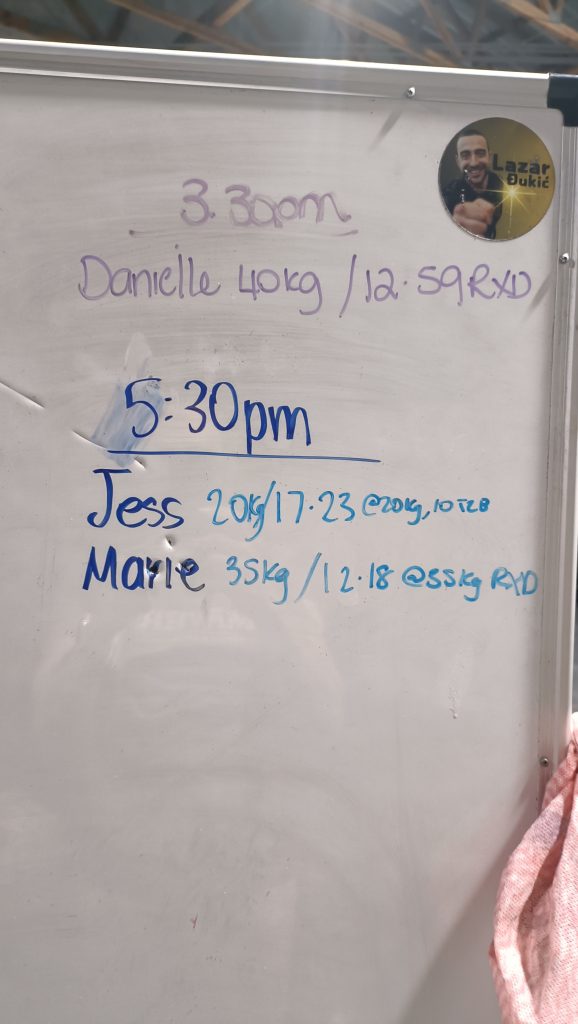 Lazar
Đukić
3.30pm
Danielle 40kg / 12.59 RXD
5:30pm
Jess 20kg/17.23 @20kg, 10 T2B
Marie 35kg / 12.18 @35kg RXD